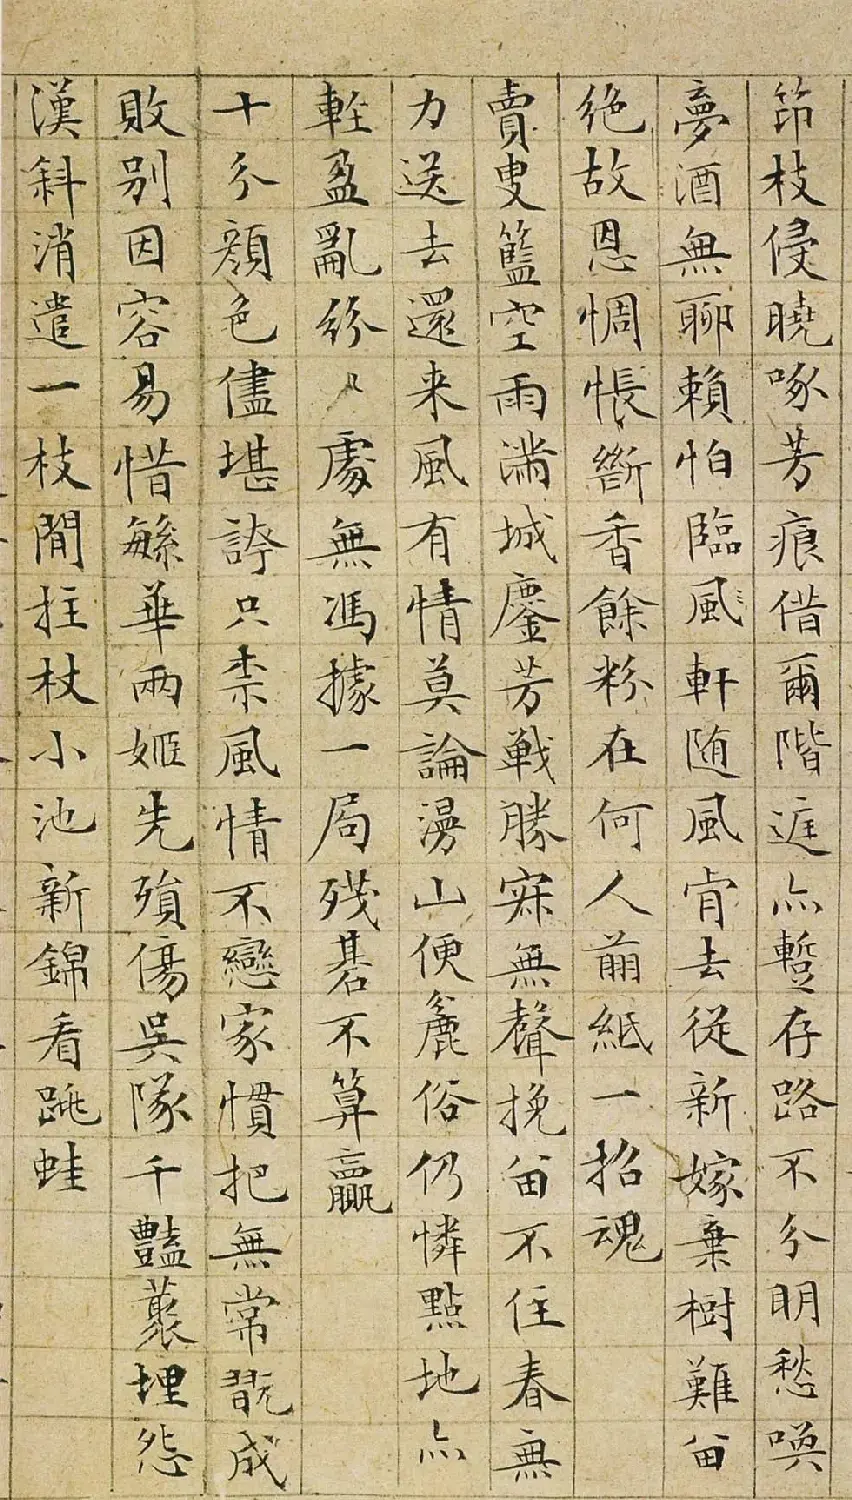 筇枝侵曉啄芳痕借爾階𨓍亦蹔存路不分明愁喚
夢酒無聊賴怕臨風軒随風肯去從新嫁棄樹難留
絶故恩惆悵斷香餘粉在何人剪紙一招魂
賣叟籃空雨滿城鏖芳戰勝寐無聲挽留不住春無
力送去還来風有情莫論漫山便麄俗仍憐點地亦
輕盈亂紛〻處無馮據一局殘碁不算贏
十分顔色儘堪誇只柰風情不戀家慣把無常翫成
敗别因容易惜緐華兩姬先殞傷吳隊千豔叢埋怨
漢斜消遣一枝閒拄杖小池新錦看跳蛙